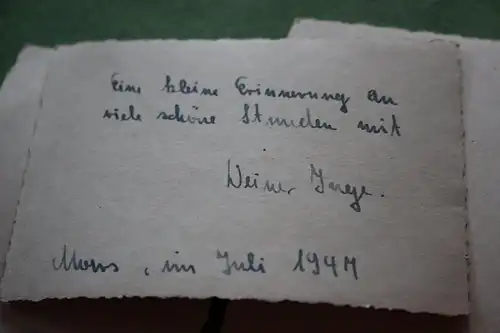 Eine kleine Erinnerung an
viele schöne Stunden mit
Deiner Inge.
Mors, im Juli 1947